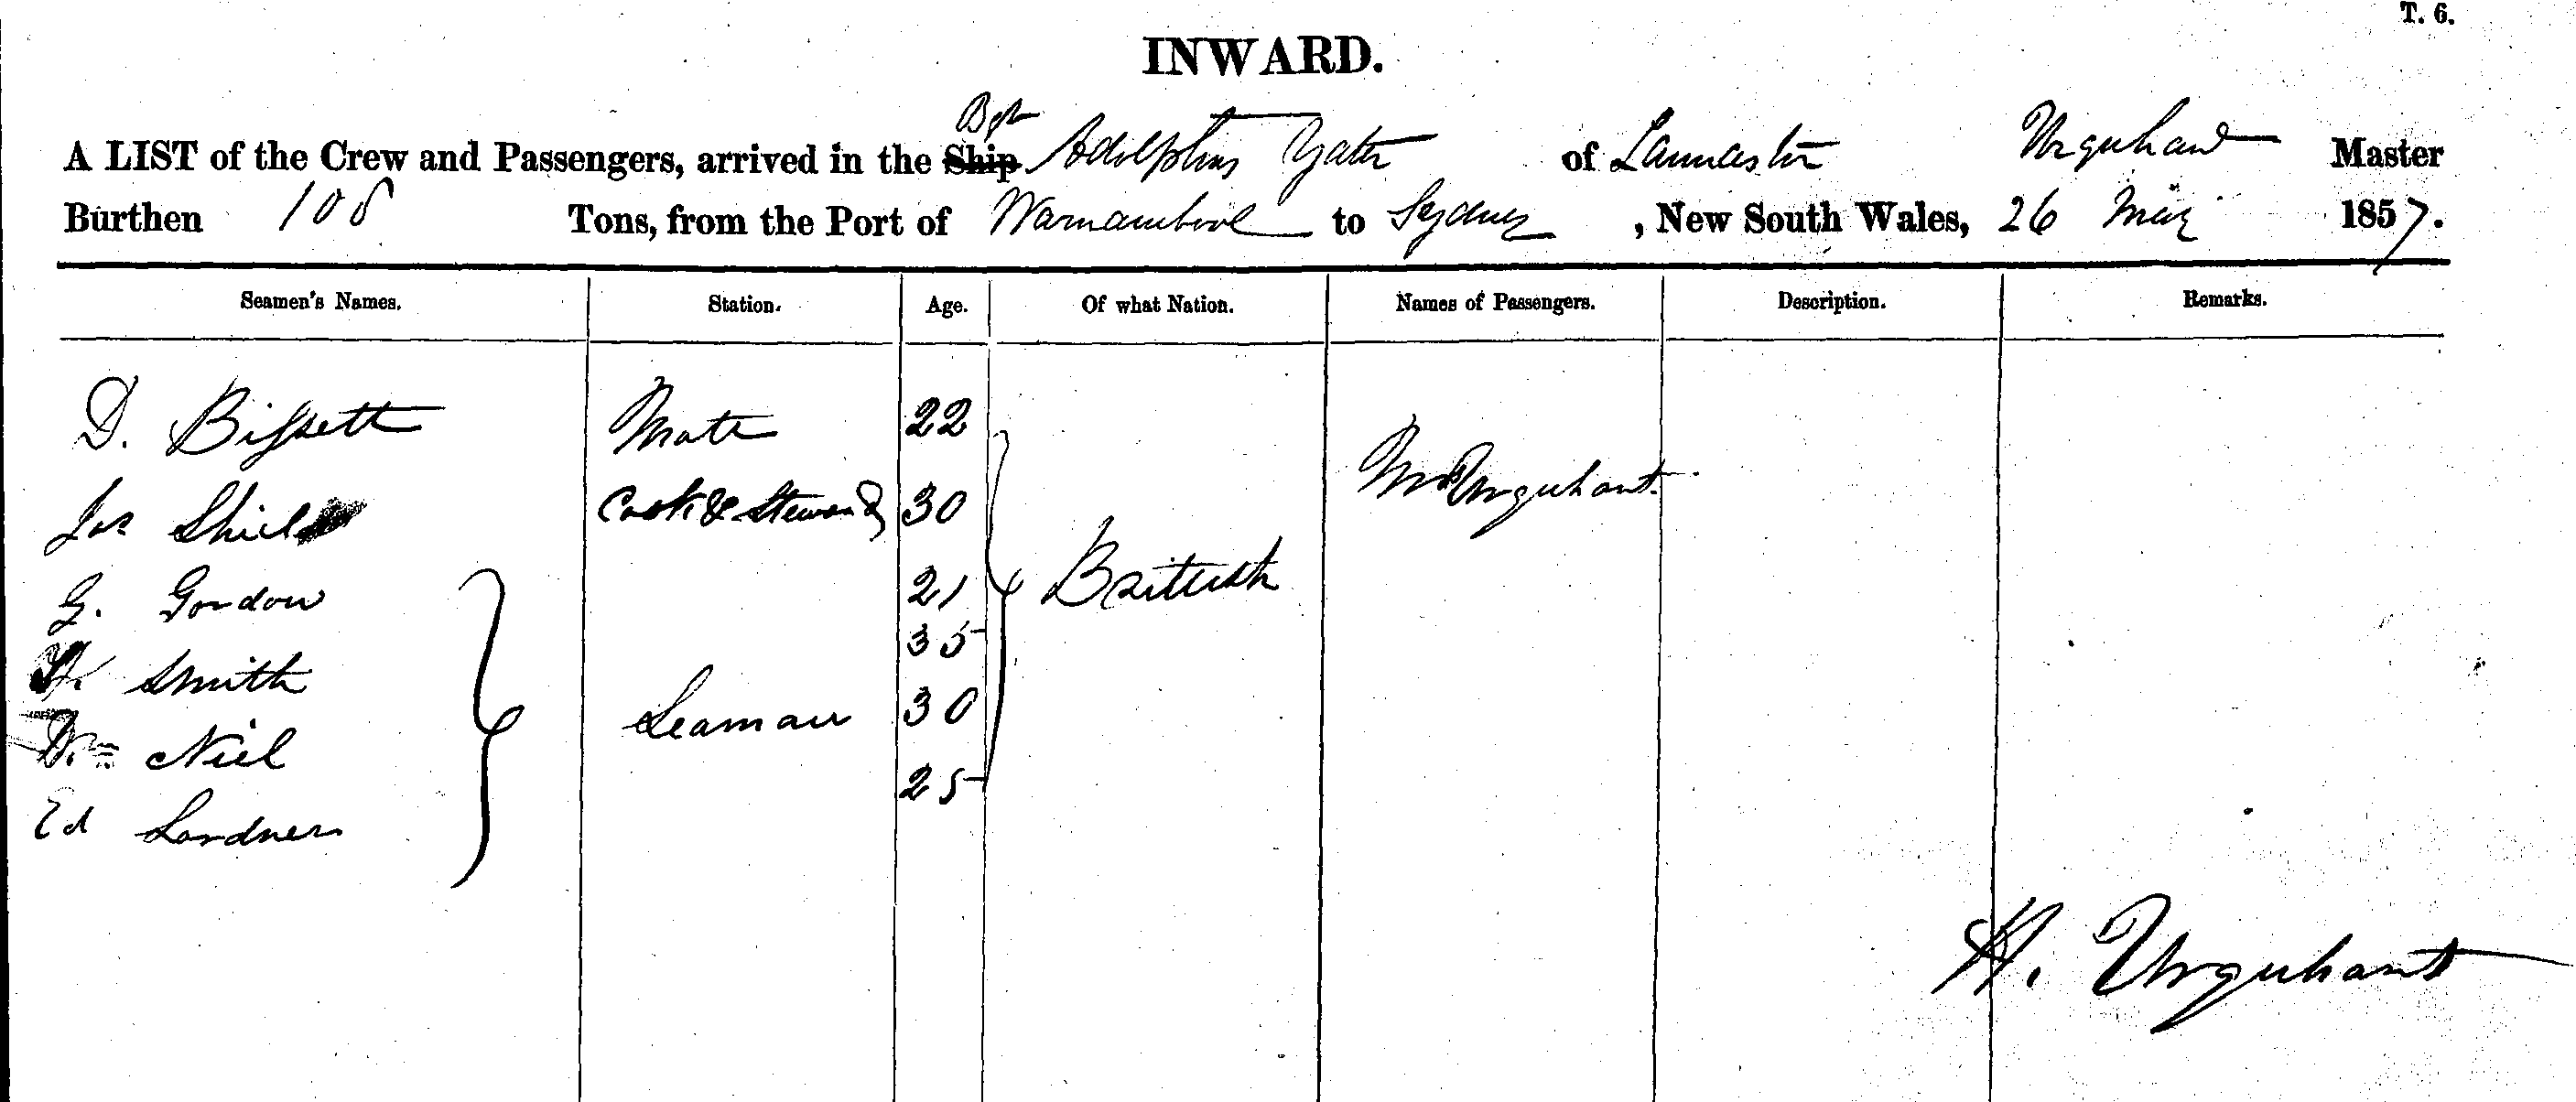 T. 6.
INWARD.
A LIST of the Crew and Passengers, arrived in the Ship Bgt Adolphus Yates of Launceston Urquhart Master
Burthen 108 Tons, from the Port of Warnambool to Sydney, New South Wales, 26 May 1857.
Seamen's Names. Station. Age. Of what Nation. Names of Passengers. Description. Remarks.
D. Bissett Mate 22
Jas Shiels Cook & Steward 30 Mrs Urquhart
G. Gordon 21 British
Smith 35
Wm Niel Seaman 30
Ed Lardner 25
H. Urquhart